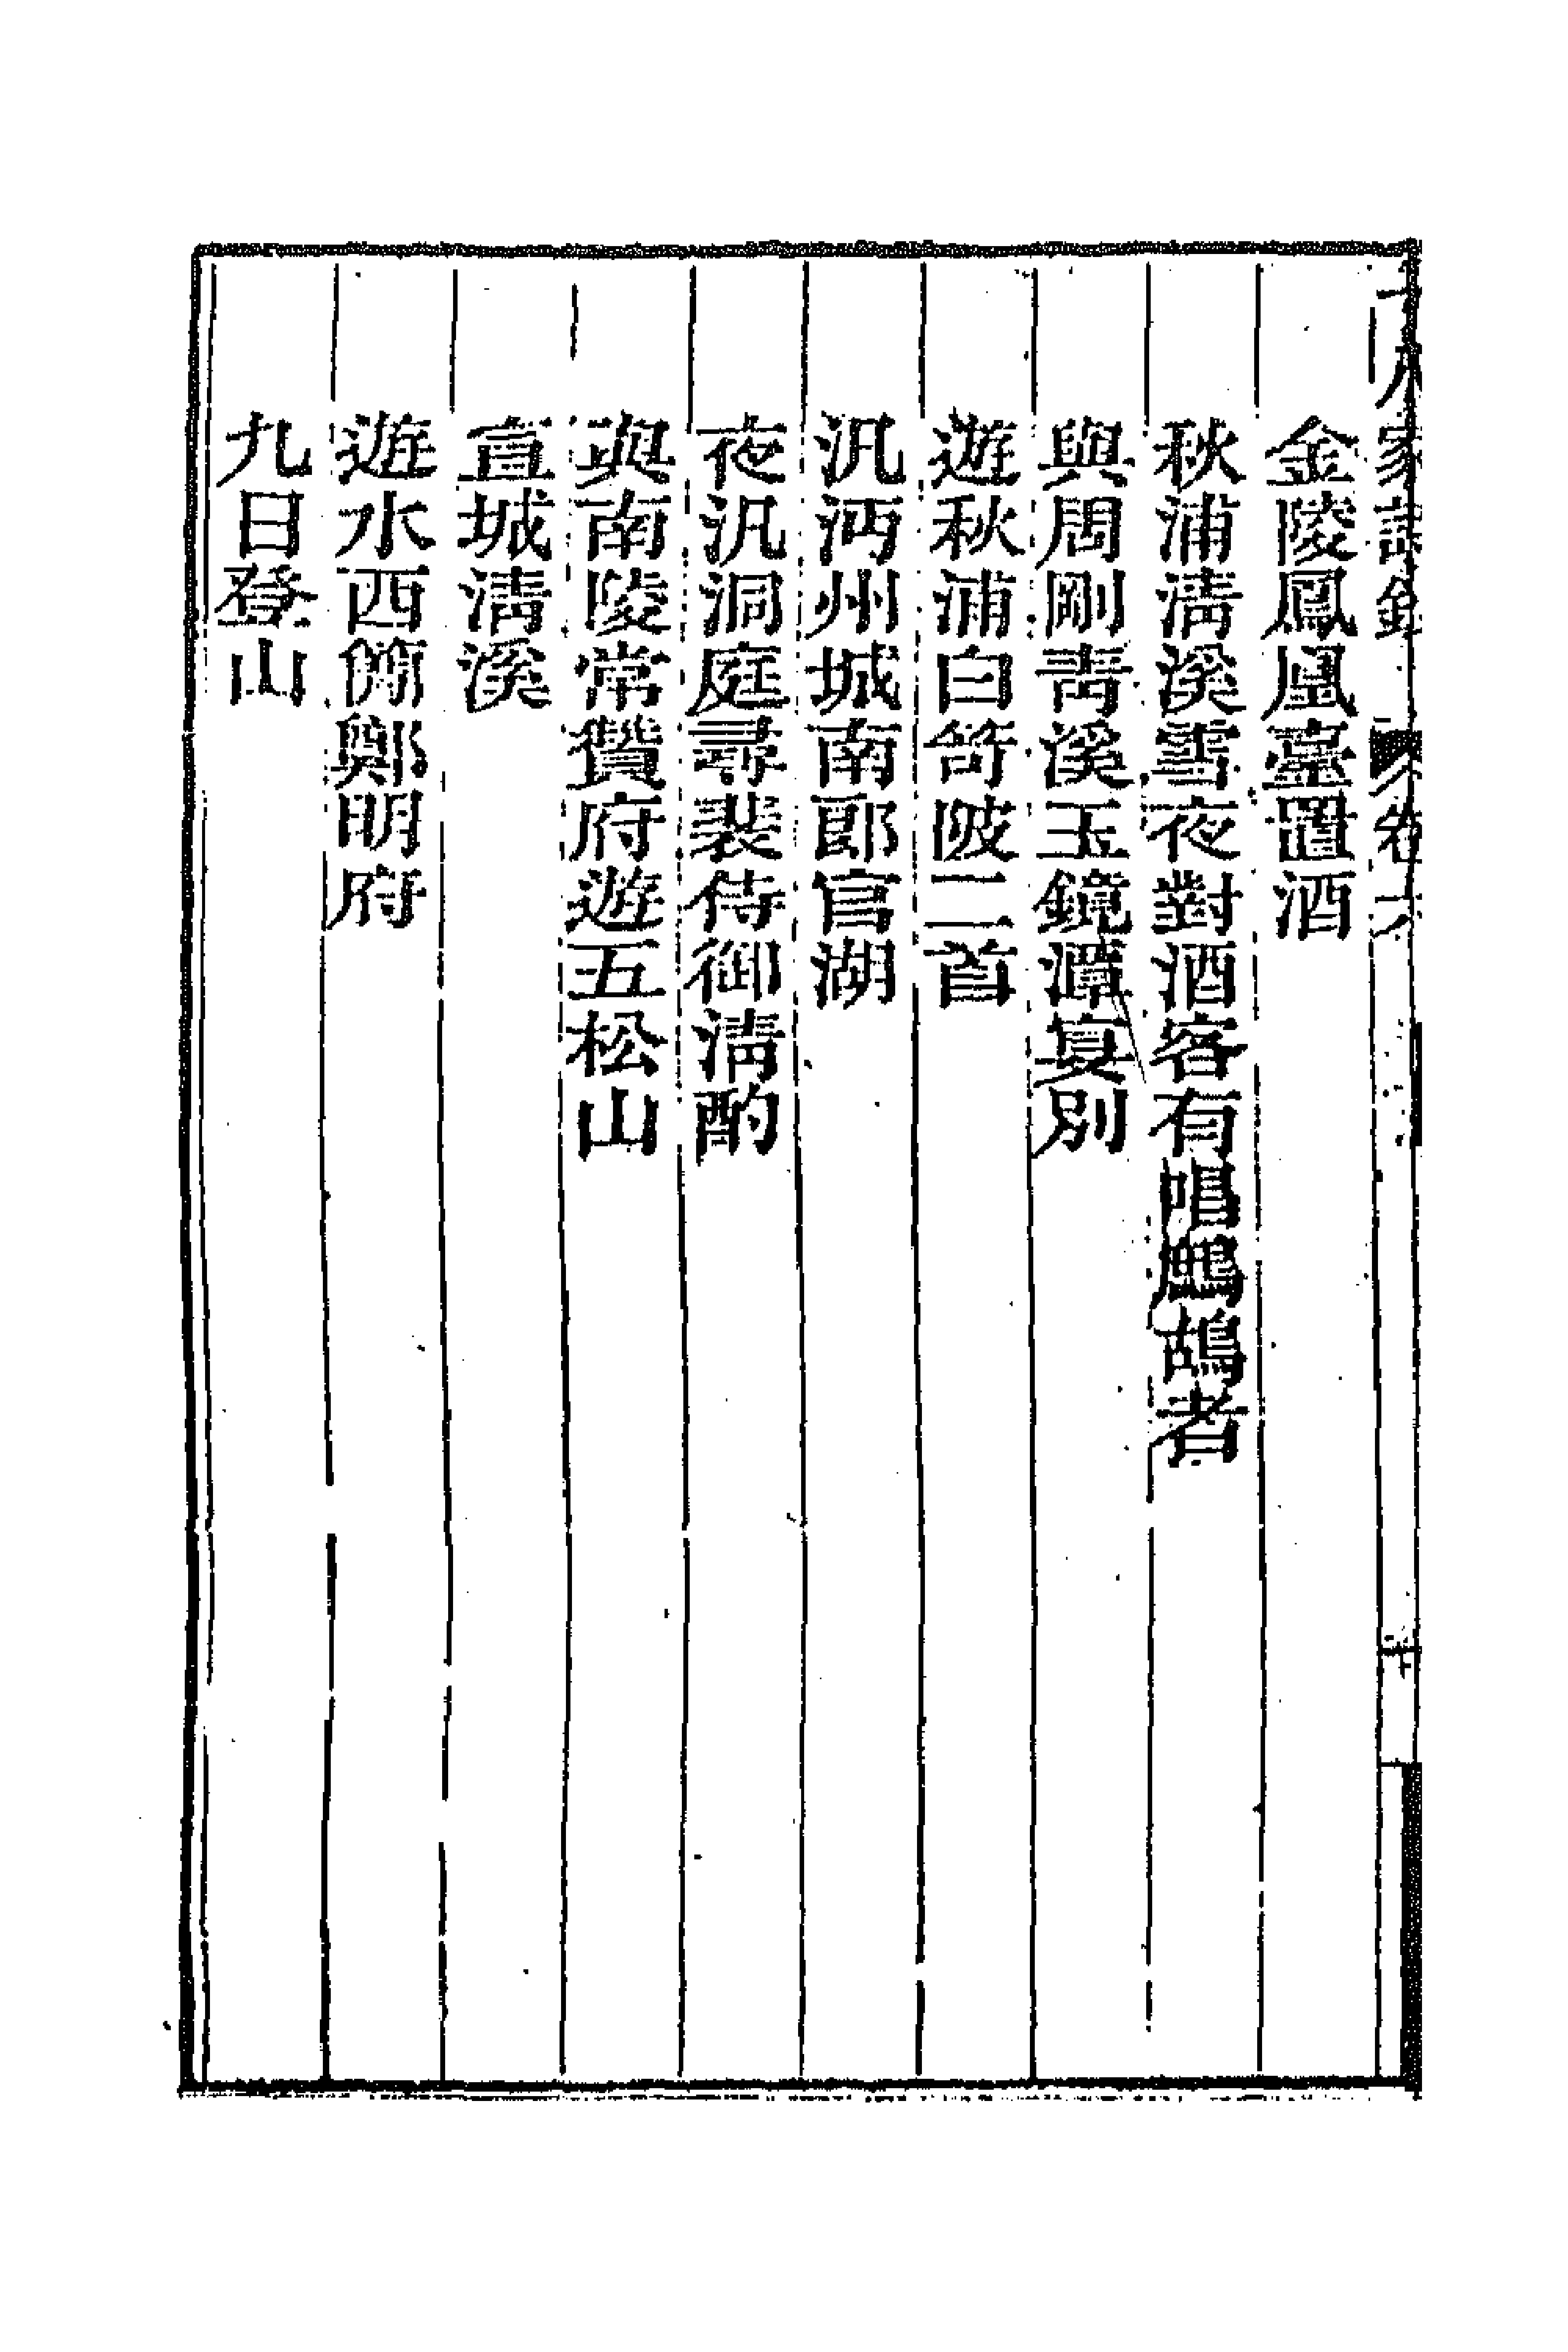 十八家詩鈔 卷六 十
金陵鳳凰臺置酒
秋浦淸溪雪夜對酒客有唱鷓鴣者
與周剛靑溪玉鏡潭宴別
遊秋浦白笴陂二首
汎沔州城南郎官湖
夜汎洞庭尋裴侍御淸酌
與南陵常贊府遊五松山
宣城淸溪
遊水西簡鄭明府
九日登山